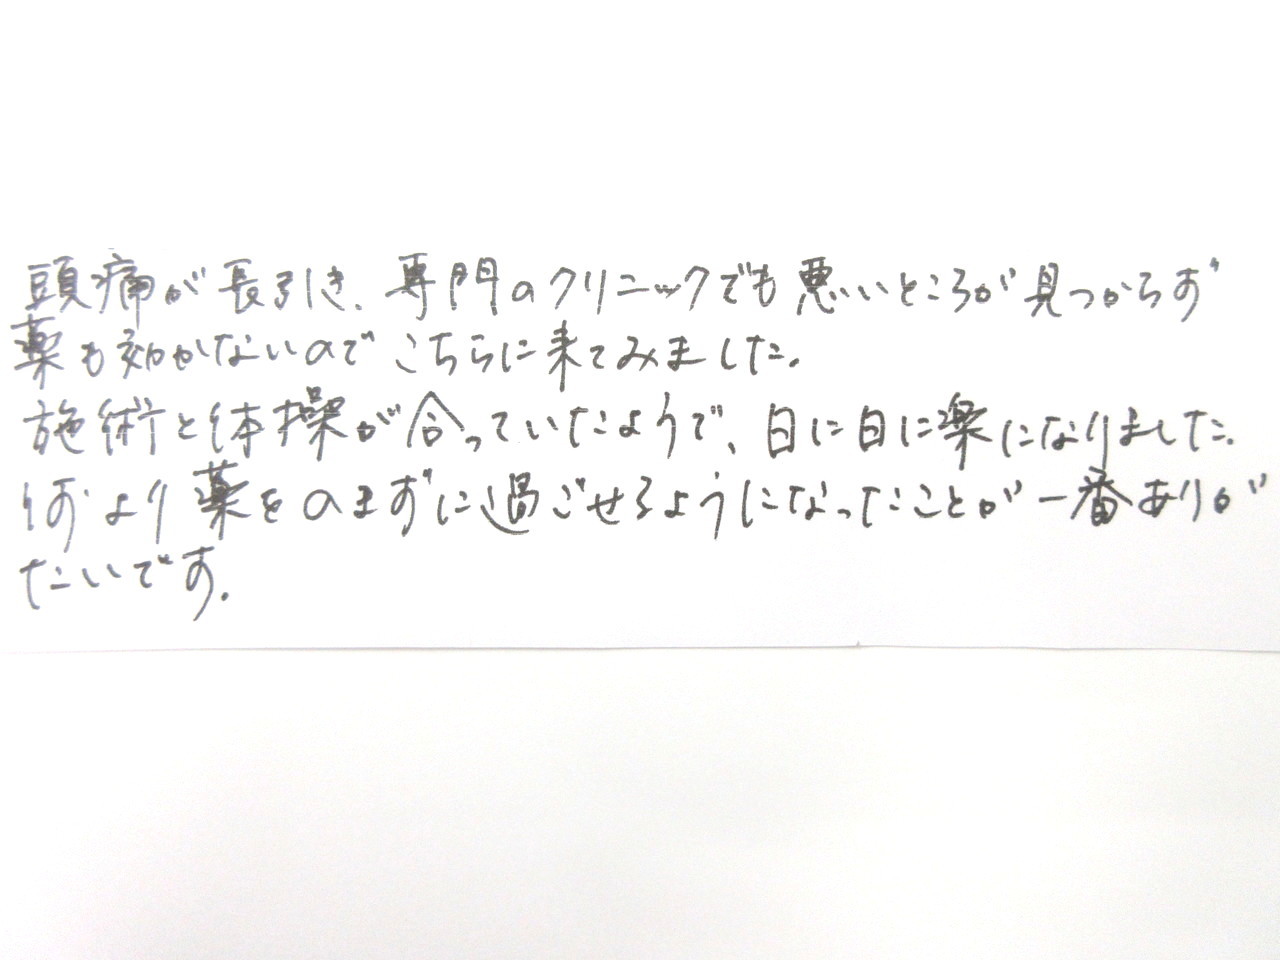 頭痛が長引き、専門のクリニックでも悪いところが見つからず
薬も効かないのでこちらに来てみました。
施術と体操が合っていたようで、日に日に楽になりました。
何より薬をのまずに過ごせるようになったことが一番ありが
たいです。